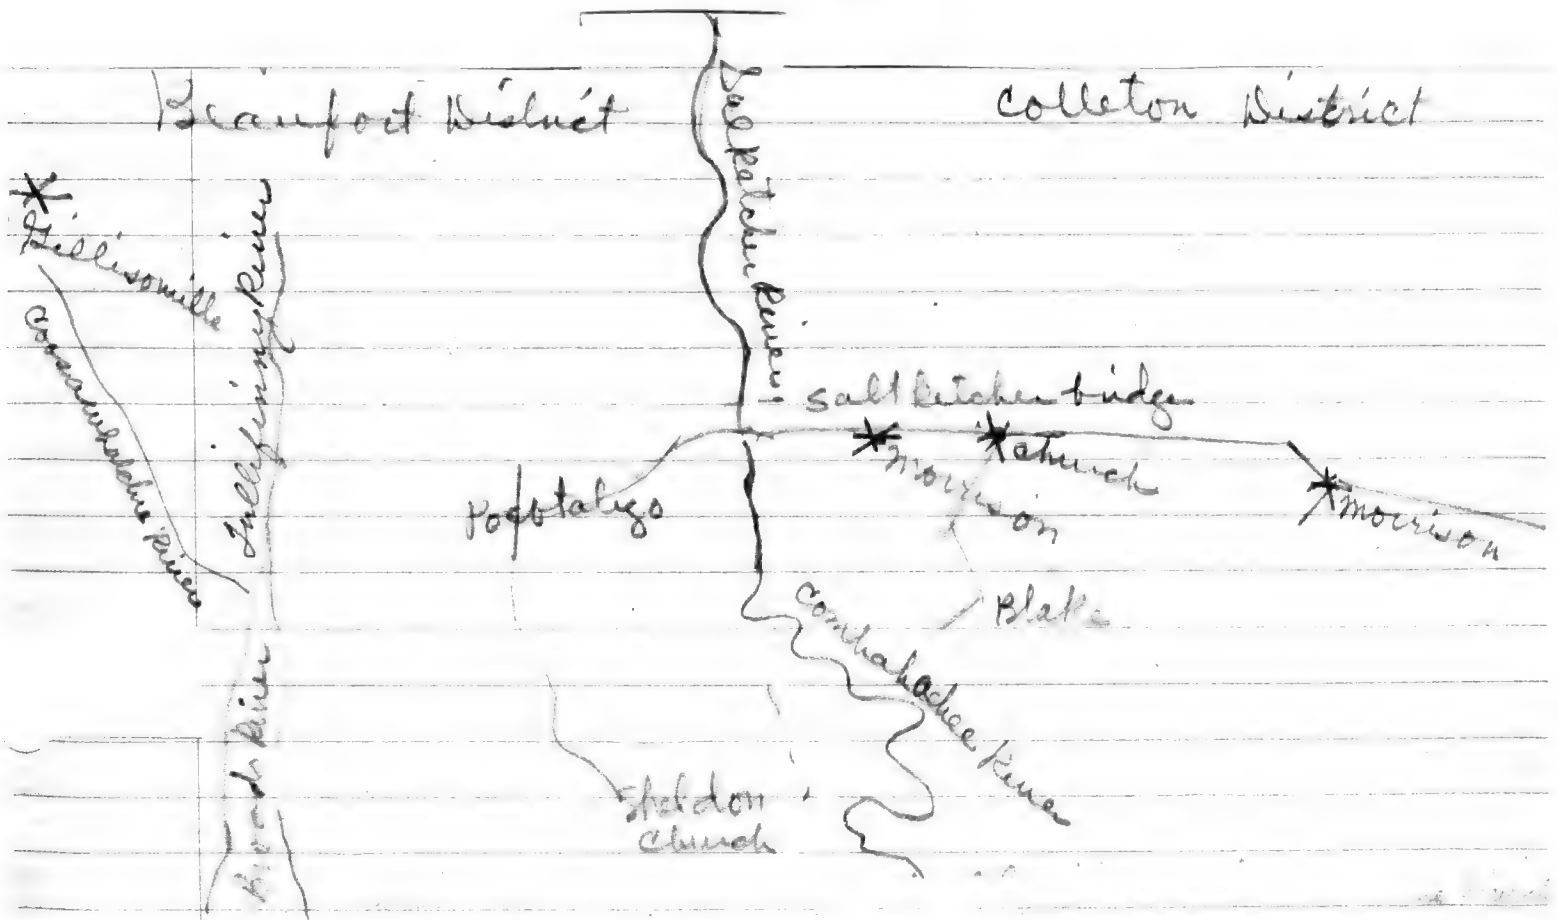 Beaufort District
Colleton District
Salketcher River
Gillisonville
Coosawhatchie River
Tullifinny River
Salt ketcher bridge
Morrison
Church
Morrison
Pocotaligo
Blake
Combahachee River
Broad River
Sheldon
Church